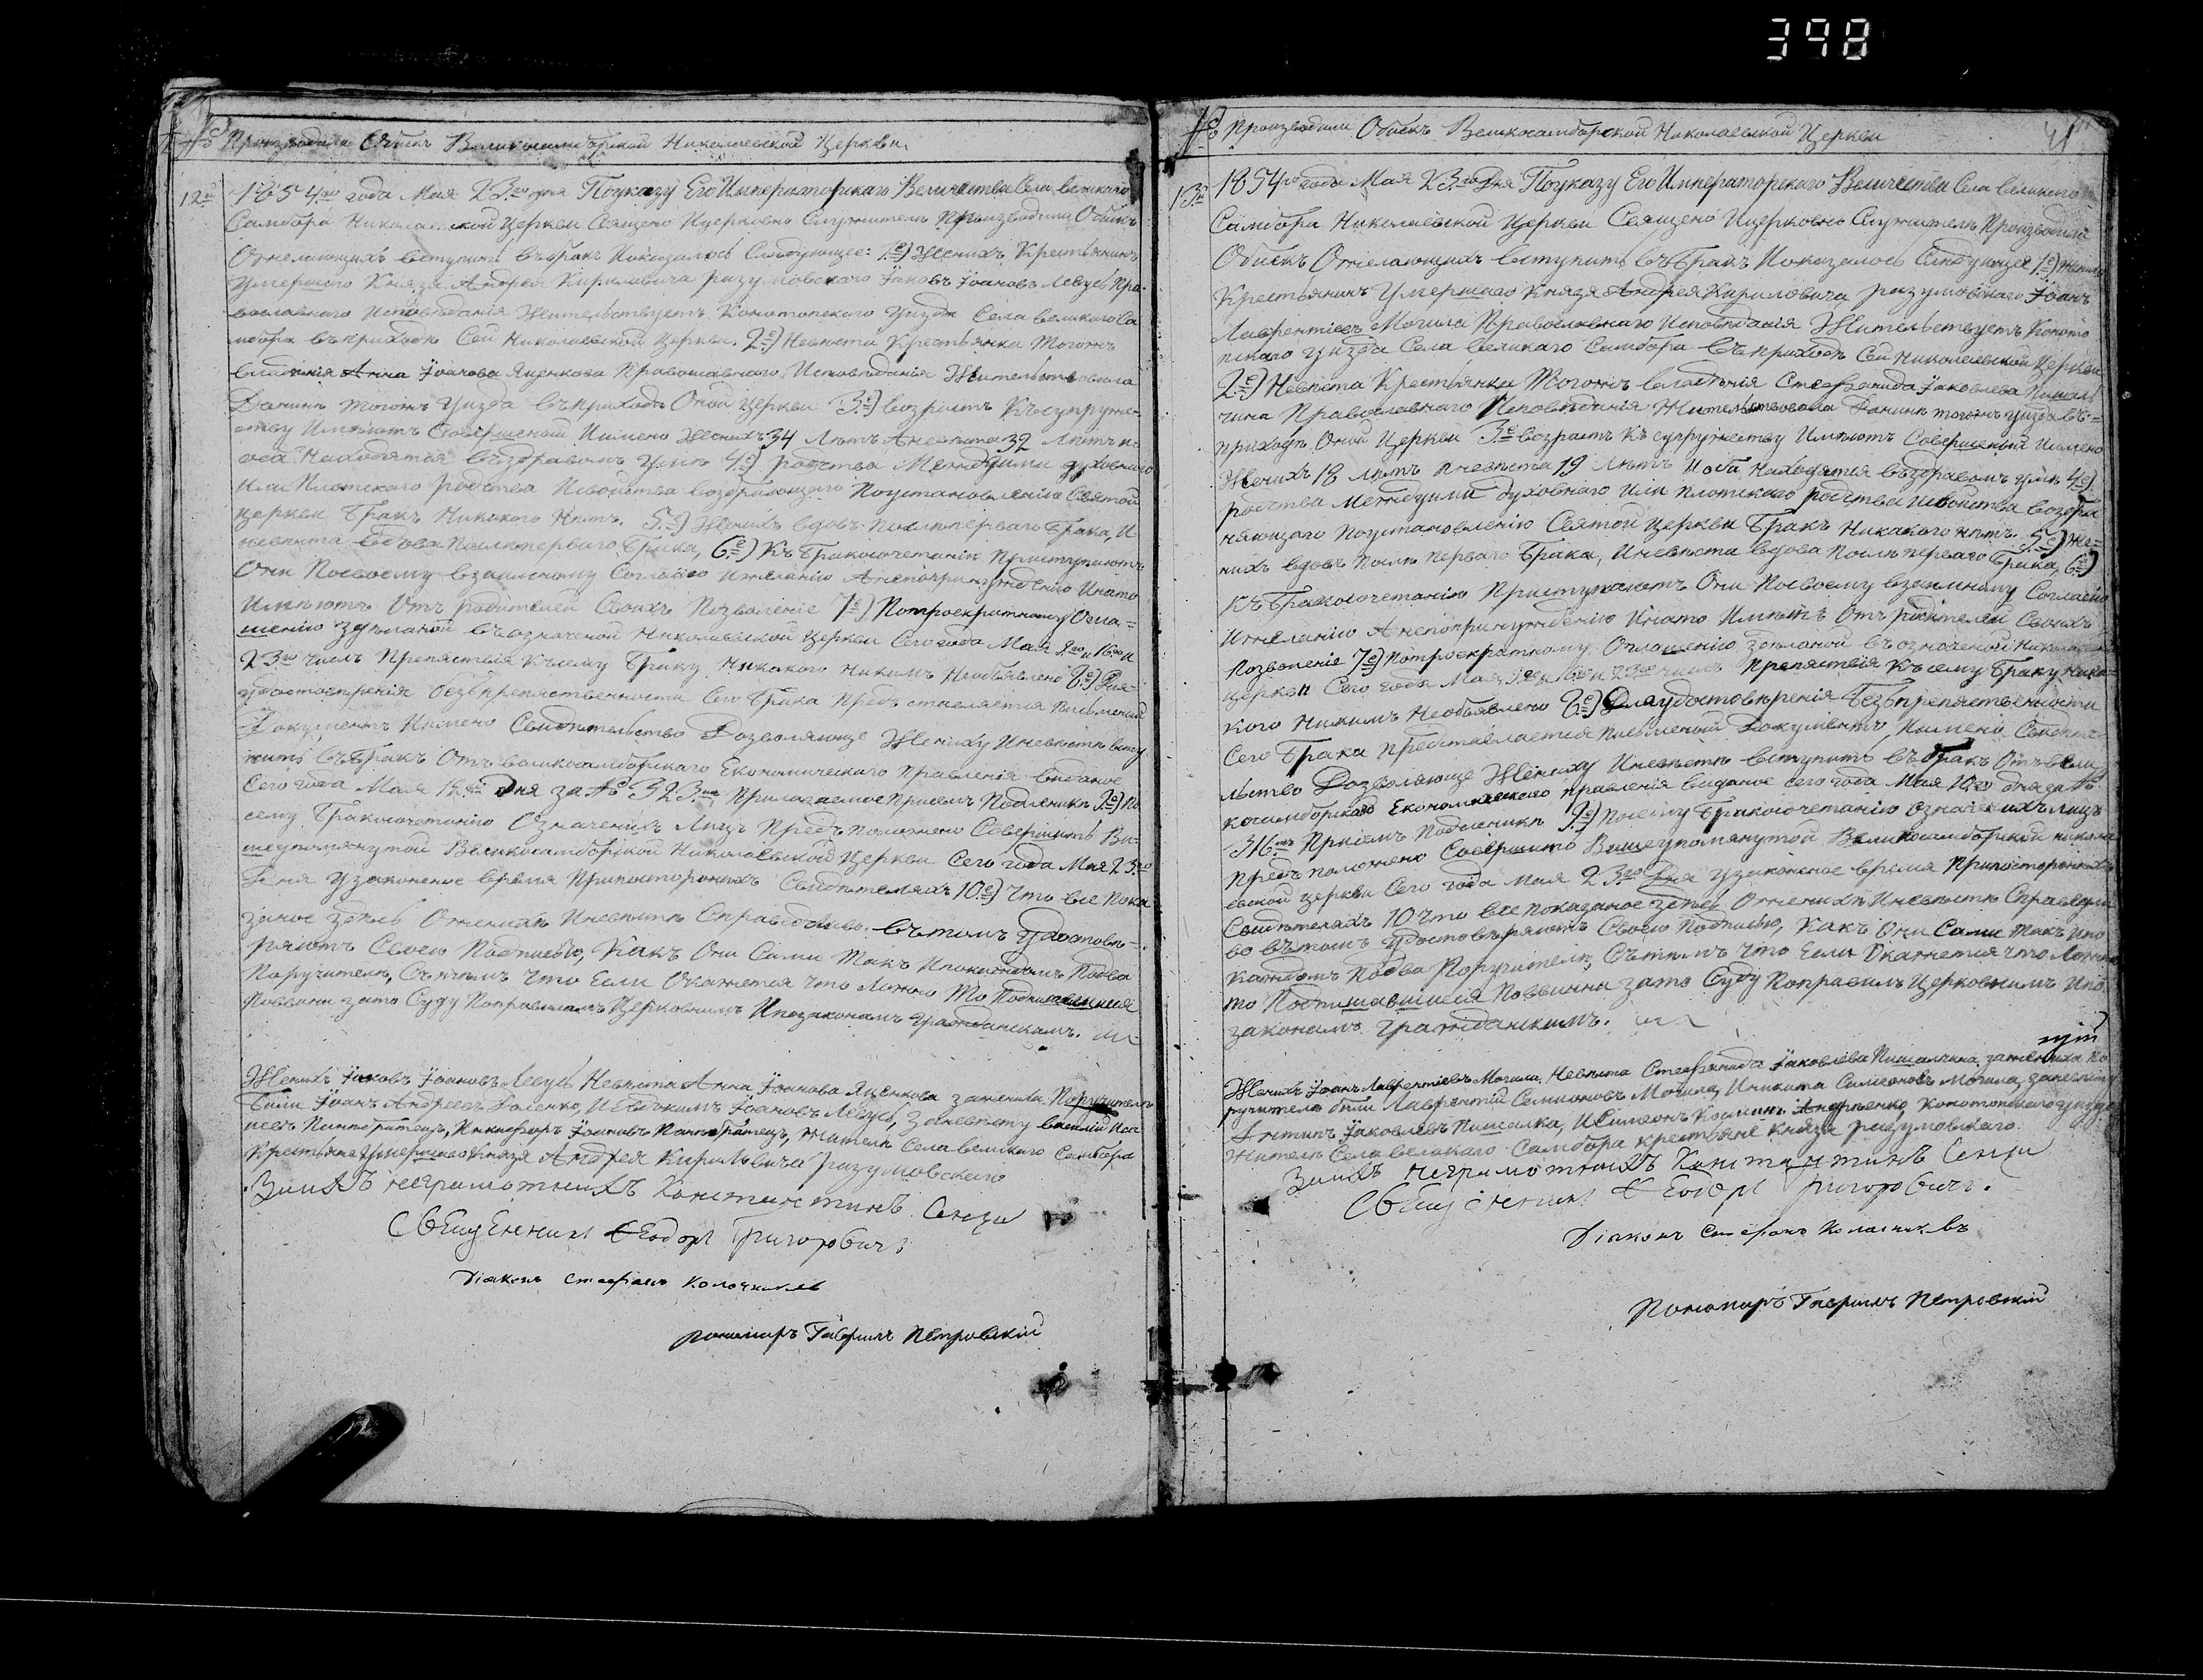 398
№ Производили Обыскъ Великосамборской Николаевской Церкви.
12е 1854го года Мая 23го дня По указу Его Императорскаго Величества Села великаго
Самбора Николаевской Церкви Священо Ицерковно Служители Производили Обыскъ
Ожелающихъ вступить въ бракъ Иоказалось Слѣдующее: 1е) Женихъ Крестьянинъ
Умершаго Князя Андрея Кириловича разумовского Іаковъ Іоановъ Левусь Пра-
вославнаго Исповѣданія Жительствуетъ Конотопского Уизда Села великаго Са
мбора въ приходѣ Сей Николаевской Церкви. 2е) Невѣста Крестьянка Тогожъ
владѣнія Анна Іоанова Яценкова Православнаго Исповѣданія Жительствовала
Данинѣ тогожъ Уизда въ приходѣ Оной Церкви 3е) возрастъ Къ супруже-
ству Имѣютъ Совершеный Имено Женихъ 34 Лѣтъ Аневѣста 32 Лѣтъ и
оба Находятся въ здравомъ Умѣ 4е) родства Между ими духовнаго
Или Плотскаго родства Исвойства возбраняющаго Поустановленію Святой
Церкви Бракъ Никакого Нѣтъ. 5е) Женихъ вдовъ Послѣ перваго Брака, И
невѣста вдова Послѣ перваго Брака, 6е) Къ Бракосочетанію Приступаютъ
Они Посвоему взаимному Согласію Ижеланію Анепопринужденію Инато
Имѣютъ Отъ родителей Своихъ Позволеніе 7е) Потроекратному Огла=
шенію здѣланой въ означеной Николаевской Церкви Сего года Мая 9го, 16го и
23го Чиселъ Препятствія Ксему Браку Никакого Никимъ Необъявлено 8е) Для
удостовѣренія безъ препятственности Сего Брака Предъставляется Письменый
Документъ Имено Свидѣтельство Дозволяюще Жениху Иневѣстѣ всту
пить въ Бракъ Отъ Великосамборскаго Економическаго Правленія виданое
Сего года Мая дня за № 323мъ Прилагаемое Присемъ Подлиникѣ 9е) По
сему Бракосочетанію Означеныхъ Лицъ Предъ положено Совершить Ви-
шеупомянутой Великосамборской Николаевской Церкви Сего года Мая 23го
Дня Узаконеное время Припостороныхъ Свидѣтеляхъ 10е) Что все Пока
заное здѣсь Оженихѣ Иневѣстѣ Справедливо. въ томъ Удостовѣ-
ряютъ Своею Подписью, Какъ Они Сами Такъ Ипокаждомъ Подва
Поручителя, Съ тѣмъ Что Если Окажется Что Ложно То Подписавшися
Повинни зато Суду Поправиламъ Церковнимъ Ипозаконамъ Гражданскимъ.
Женихъ Іаковъ Іоановъ Левусь Невѣста Анна Іоанова Яценкова зажениха Поручители
Били Іоанъ Андреевъ Доленко, И Евдокимъ Іоановъ Левусь, Заневѣсту василій
Панкратецъ, Никифоръ Іоановъ Панкратецъ, Жители Села великаго Самбора
Крестьяне Умершаго Князя Андрея Кириловича разумовскаго
За ихъ неграмотныхъ Константинъ
Священникъ Феодоръ Григоровичъ
Діаконъ Стефанъ Колачниковъ
пономарь Гавріилъ Петровскій
№ Производили Обыскъ Великосамборской Николаевской Церкви
41
13е 1854го года Мая 23го Дня По указу Его Императорскаго Величества Села великаго
Самбора Николаевской Церкви Священо Ицерковно Служители Производили
Обыскъ Ожелающихъ вступить въ Бракъ Иоказалось Слѣдующее 1е) Женихъ
Крестьянинъ Умершаго Князя Андрея Кириловича разумовскаго Іоанъ
Лаврентіевъ Могила Православнаго Исповѣданія Жительствуетъ Коното
пскаго уизда Села великаго Самбора въ приходѣ Сей Николаевской Церкви
2е) Невѣста Крестьянка Тогожъ владѣнія Стефанида Іаковлева Пишаль
чина Православнаго Исповѣданія Жительствовала Данинѣ тогожъ уизда въ=
приходѣ Оной Церкви 3е возрастъ Къ супружеству Имѣютъ Совершеный Имено
Женихъ 18 лѣтъ Аневѣста 19 Лѣтъ И оба Находятся въ здравомъ умѣ 4е)
родства Между ими Духовнаго Или Плотскаго родства Исвойства возбра
няющаго Поустановленію Святой Церкви Бракъ Никакого нѣтъ. 5е) Же=
нихъ вдовъ Послѣ перваго Брака, Иневѣста вдова Послѣ перваго Брака, 6е)
Къ Бракосочетанію Приступаютъ Они Посвоему взаимному Согласію
Ижеланію Анепопринужденію Инато Имѣютъ Отъ родителей Своихъ
Позволеніе 7е) Потроекратному Оглашенію здѣланой въ означеной Николаевской
Церкви Сего года Мая 9го, 16го и 23го чиселъ Препятствія Къ сему Браку Ника
кого Никимъ Необъявлено 8е) Для удостовѣренія Безъпрепятственности
Сего Брака Представляется Письменый Документъ Имено Свидѣте
льство Дозволяюще Жениху Иневѣстѣ вступить въ Бракъ Отъ вели
косамборскаго Економическаго Правленія виданое сего года Мая 10го дня за №
316мъ Присемъ Подлиникѣ 9е) Посему Бракосочетанію Означеныхъ лицъ
Предъ положено Совершить Вишеупомянутой Великосамборской Никола
евской Церкви Сего года Мая 23го Дня Узаконеное время Припостороныхъ
Свидѣтеляхъ 10 Что все показаное здѣсь Оженихѣ Иневѣстѣ Справедли
во въ томъ Удостовѣряютъ Своею Подписью, Какъ Они Сами Такъ Ипо
каждомъ Подва Поручителя, Съ тѣмъ Что Если Окажется что Ложно
то Подписавшися Повинни зато Суду Поправиламъ Церковнимъ Ипо
законамъ Гражданскимъ.
Женихъ Іоанъ Лаврентіевъ Могила, Невѣста Стефанида Іаковлева Пишалчина, зажениха По
ручители били Лаврентій Семионовъ Могила, Иникита Симеоновъ Могила, заневѣсту
Антипъ Іаковлевъ Пишалка, И Симеонъ Косминъ Андрѣенко, Конотопскаго уизда
Жители Села великаго Самбора крестьяне Князя разумовскаго
За ихъ неграмотныхъ Константинъ
Священникъ Феодоръ Григоровичъ.
Діаконъ Стефанъ Колачниковъ
Пономарь Гавріилъ Петровскій